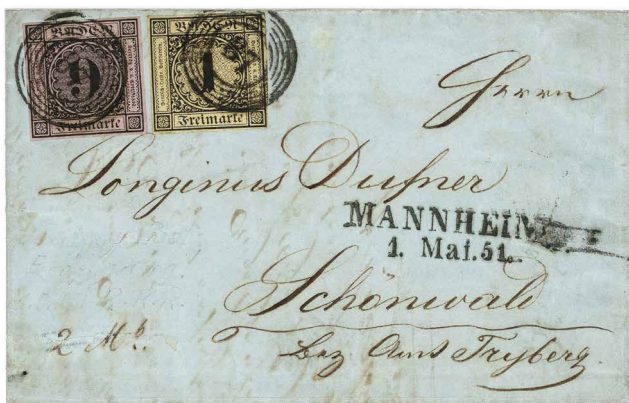 BADEN
9
Freimarke
BADEN
1
Freimarke
Herrn
Longinus Dufner
MANNHEIM
1. Mai. 51.
Schönwald
Bez Amt Tryberg.